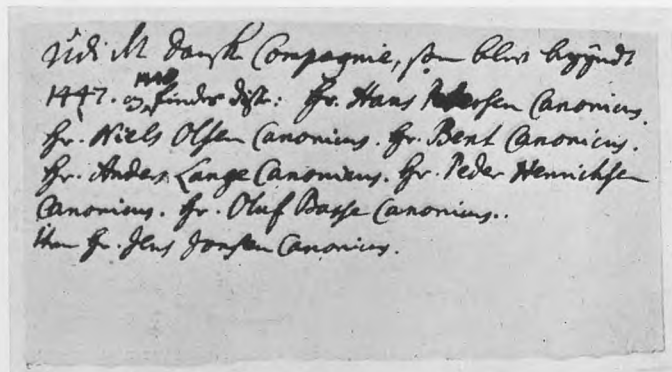 Udi Et Dansk Compagnie, som blev begyndt
1447. og findes disse: Hr. Hans Canonicus.
Hr. Niels Olsen Canonicus. Hr. Bent Canonicus.
Hr. Anders Lange Canonicus. Hr. Peder Henrichsen
Canonicus. Hr. Oluf Basse Canonicus..
Hr. Jens Jonsen Canonicus.